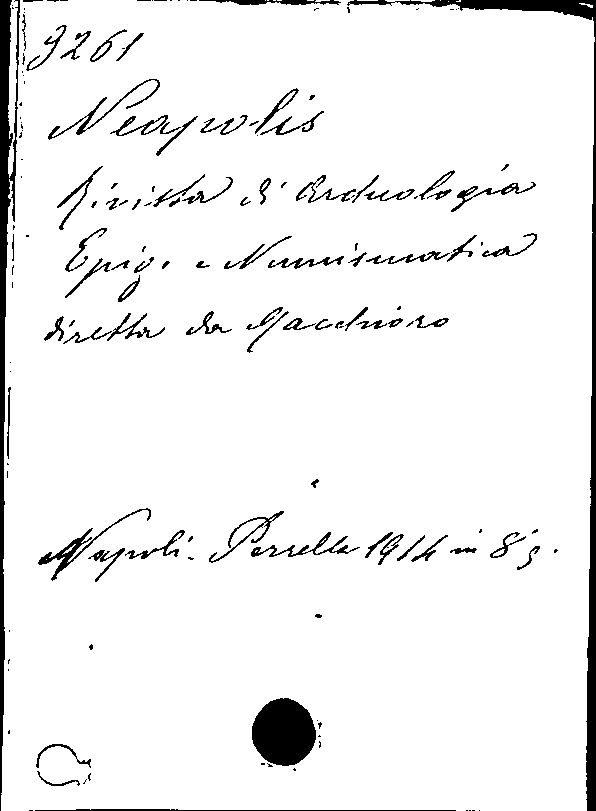 3261
Neapolis
Rivista di Archeologia
Epig. e Numismatica
diretta da Macchioro
Napoli. Perrella 1914 in 8° g.